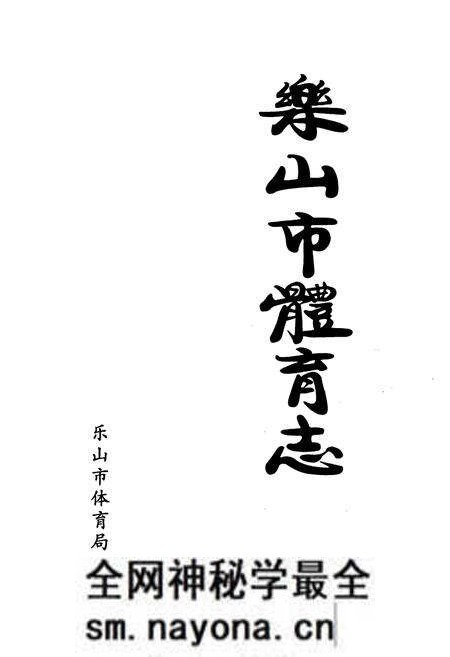 樂山市體育志
乐山市体育局
全网神秘学最全
sm.nayona.cn